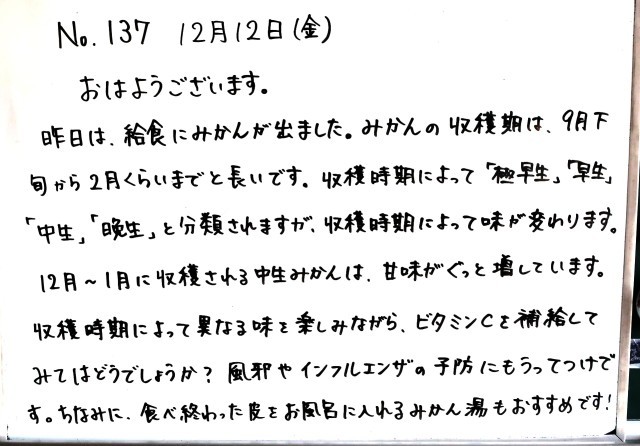 No.137 12月12日(金)
おはようございます。
昨日は、給食にみかんが出ました。みかんの収穫期は、9月下
旬から2月くらいまでと長いです。収穫時期によって「極早生」「早生」
「中生」「晩生」と分類されますが、収穫時期によって味が変わります。
12月~1月に収穫される中生みかんは、甘味がぐっと増しています。
収穫時期によって異なる味を楽しみながら、ビタミンCを補給して
みてはどうでしょうか?風邪やインフルエンザの予防にもうってつけで
す。ちなみに、食べ終わった皮をお風呂に入れるみかん湯もおすすめです!